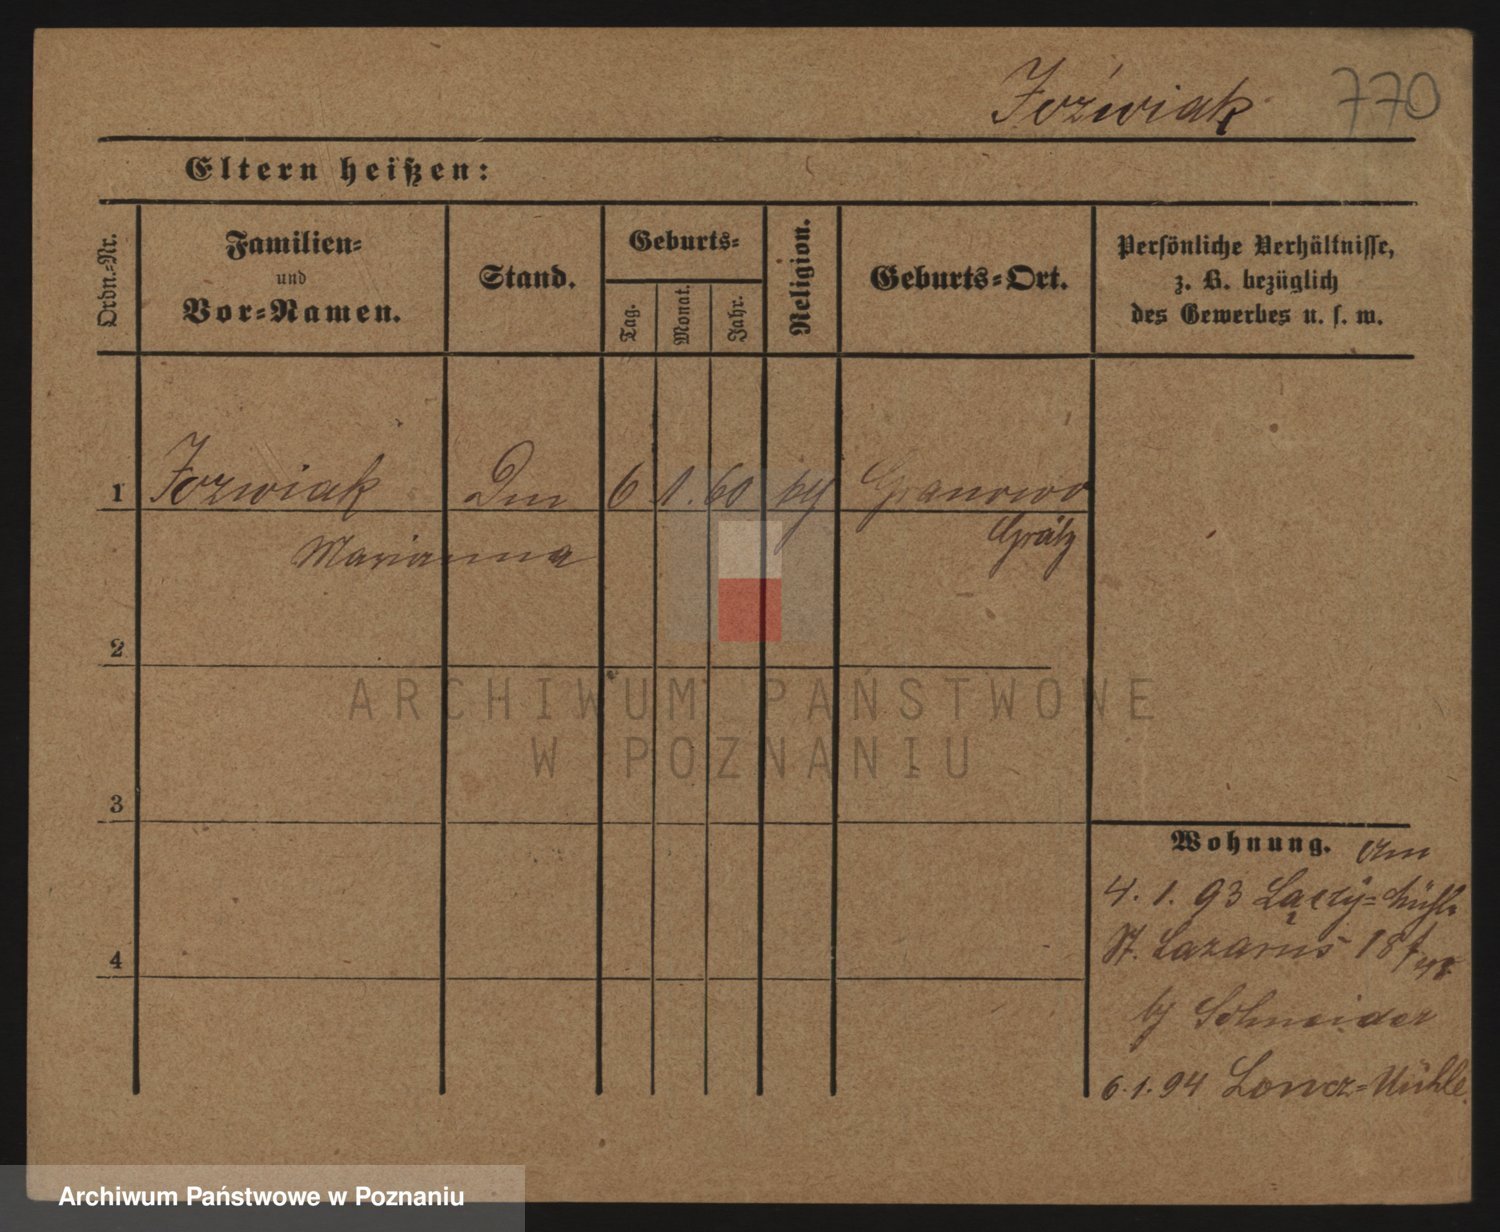 Joźwiak 770
Eltern heißen:
Ordn.-Nr.
Familien-
und
Vor-Namen.
Stand.
Geburts-
Tag.
Monat.
Jahr.
Religion.
Geburts-Ort.
Persönliche Verhältnisse,
z. B. bezüglich
des Gewerbes u. s. w.
1 Jozwiak 6 1. 60 Granowo
Marianna Grätz
2
ARCHIWUM PAŃSTWOWE
W POZNANIU
3
Wohnung.
4. 1. 93
St. Lazarus 18
4
Schneider
6. 1. 94 Mühle
Archiwum Państwowe w Poznaniu